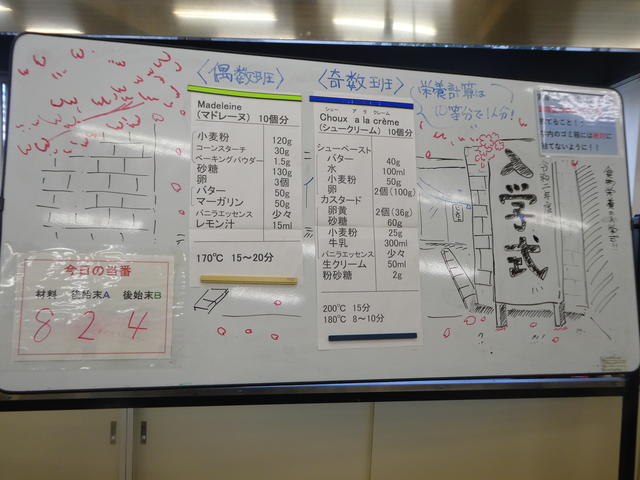 〈偶数班〉
Madeleine
(マドレーヌ) 10個分
小麦粉 120g
コーンスターチ 30g
ベーキングパウダー 1.5g
砂糖 130g
卵 3個
バター 50g
マーガリン 50g
バニラエッセンス 少々
レモン汁 15ml
170℃ 15～20分
〈奇数班〉
シュー ア ラ クレーム
Choux a la crème
(シュークリーム) 10個分
シューペースト
バター 40g
水 100ml
小麦粉 50g
卵 2個(100g)
カスタード
卵黄 2個(36g)
砂糖 60g
小麦粉 25g
牛乳 300ml
バニラエッセンス 少々
生クリーム 50ml
粉砂糖 2g
200℃ 15分
180℃ 8～10分
栄養計算は
10等分で1人分!
捨てること!
室内のゴミ箱には絶対に
捨てないように!!
入学式
今日の当番
材料 後始末A 後始末B
8 2 4